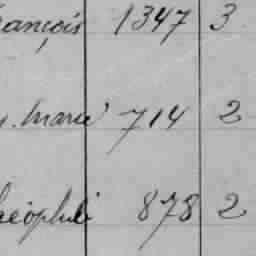 rançois 1347 3
. Marie 714 2
éophile 878 2